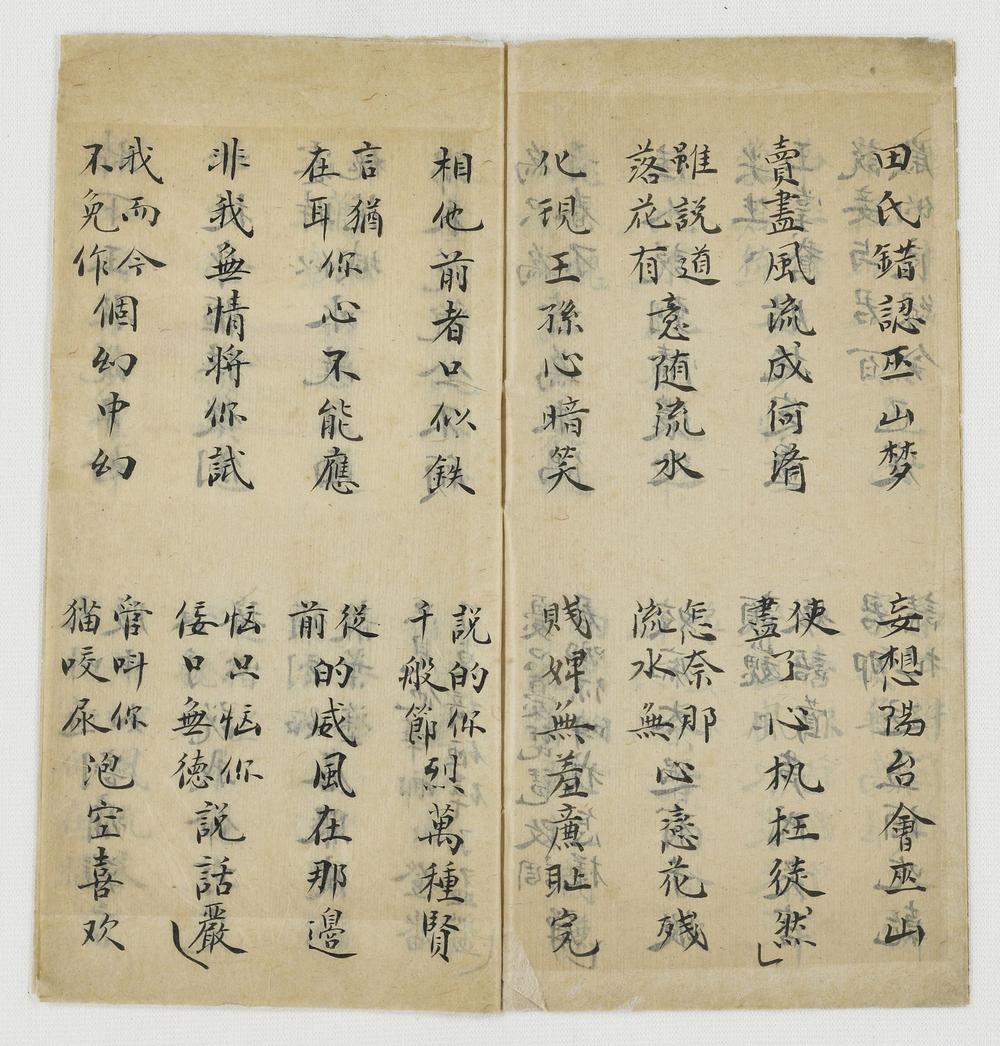 田氏錯認巫山梦
妄想陽台會巫山
賣盡風流成何済
使盡了心机枉徒然
雖說道落花有意随流水
怎奈那流水無心恋花殘
化現王孫心暗笑
賤婢無羞廉耻完
相他前者口似鉄
說的你千般節烈萬種賢
言猶在耳你心不能應
從前的威風在那邊
非我無情將你試
恼只恼你佞口無德說話嚴
我而今不免作個幻中幻
管叫你猫咬尿泡空喜欢